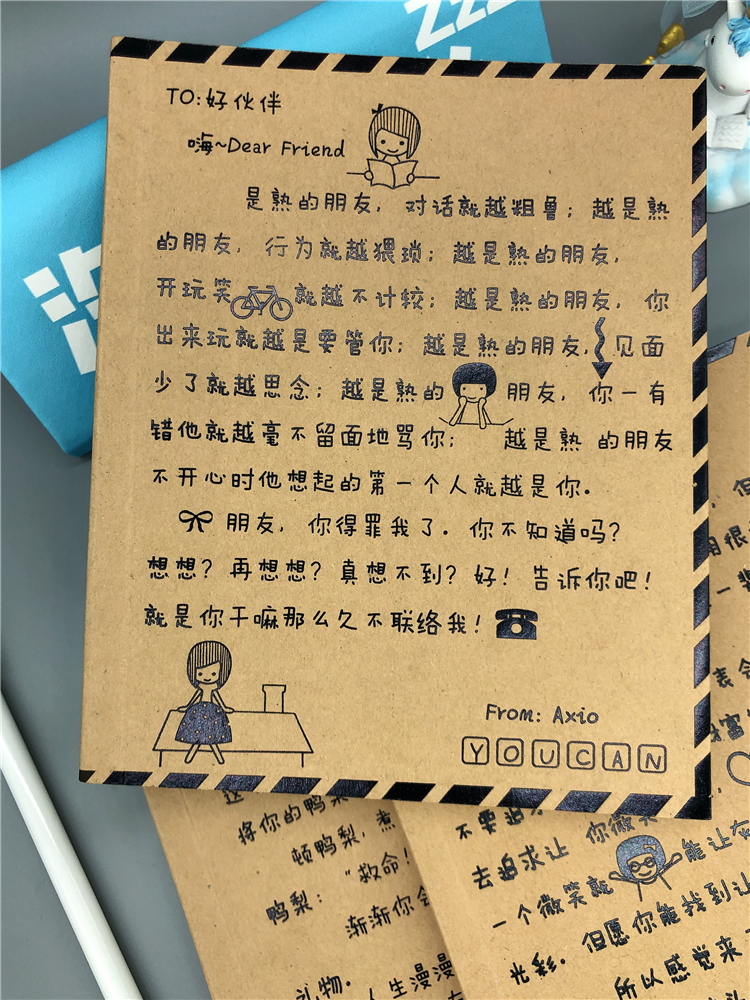 zzz
TO:好伙伴
嗨~Dear Friend
是熟的朋友，对话就越粗鲁；越是熟
的朋友，行为就越猥琐；越是熟的朋友，
开玩笑就越不计较；越是熟的朋友，你
出来玩就越是要管你；越是熟的朋友，见面
少了就越思念；越是熟的朋友，你一有
错他就越毫不留面地骂你；越是熟的朋友
不开心时他想起的第一个人就越是你.
朋友，你得罪我了.你不知道吗？
想想？再想想？真想不到？好！告诉你吧！
就是你干嘛那么久不联络我！
From: Axio
YOUCAN
将你的鸭梨
顿鸭梨，煮
鸭梨："救命！
渐渐你会
礼物.
人生漫漫
不要追求
去追求让 你微笑
能让灰
一个微笑就
光彩.但愿你能找到让
所以感觉来